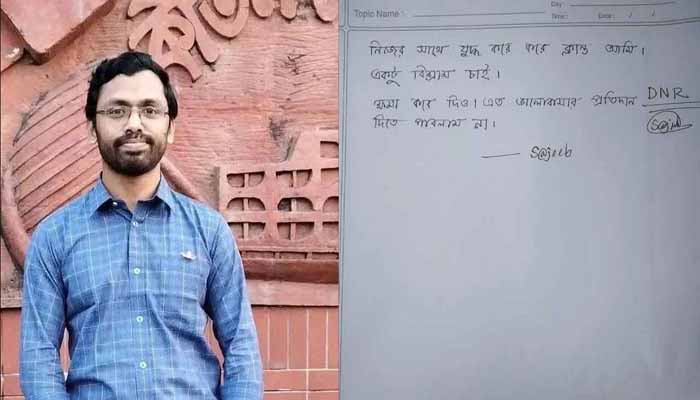 কৃতান্ত
Topic Name :
Day
Time :
Date : / /
নিজের সাথে যুদ্ধ করে করে ক্লান্ত আমি।
একটু বিশ্রাম চাই।
ক্ষমা করে দিও। এত ভালোবাসার প্রতিদান
দিতে পারলাম না।
DNR
Sajeeb
— Sajeeb